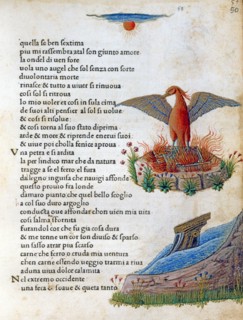 50
quella se ben sextima
piu mi rassembra atal son giunto amore
la ondel di uen fore
uola uno augel che sol senza con sorte
diuolontaria morte
rinasce & tutto a uiuer si rinuoua
cosi sol si ritroua
lo mio uoler et cosi in sula cima
de suoi alti pensier al sol si uolue
& cosi si risolue
& cosi torna al suo stato diprima
arde & more & riprende enerui suoi
& uiue poi cholla fenice aproua
Vna petra e si ardita
la per lindico mar che da natura
tragge a se il ferro el fura
dal legno inguisa che nauigi affonde
questo prouo fra londe
damaro pianto che quel bello scoglio
a col suo duro argoglio
conducta oue affondar chen uien mia uita
cosi salma sfornita
furandol cor che fu gia cosa dura
& me tenne un cor diuiso & sparso
un sasso atrar piu scarso
carne che ferro o cruda mia uentura
chen carne essendo ueggio trarmi a riua
aduna uiua dolce calamita
Nel extremo occidente
una fera e soaue & queta tanto